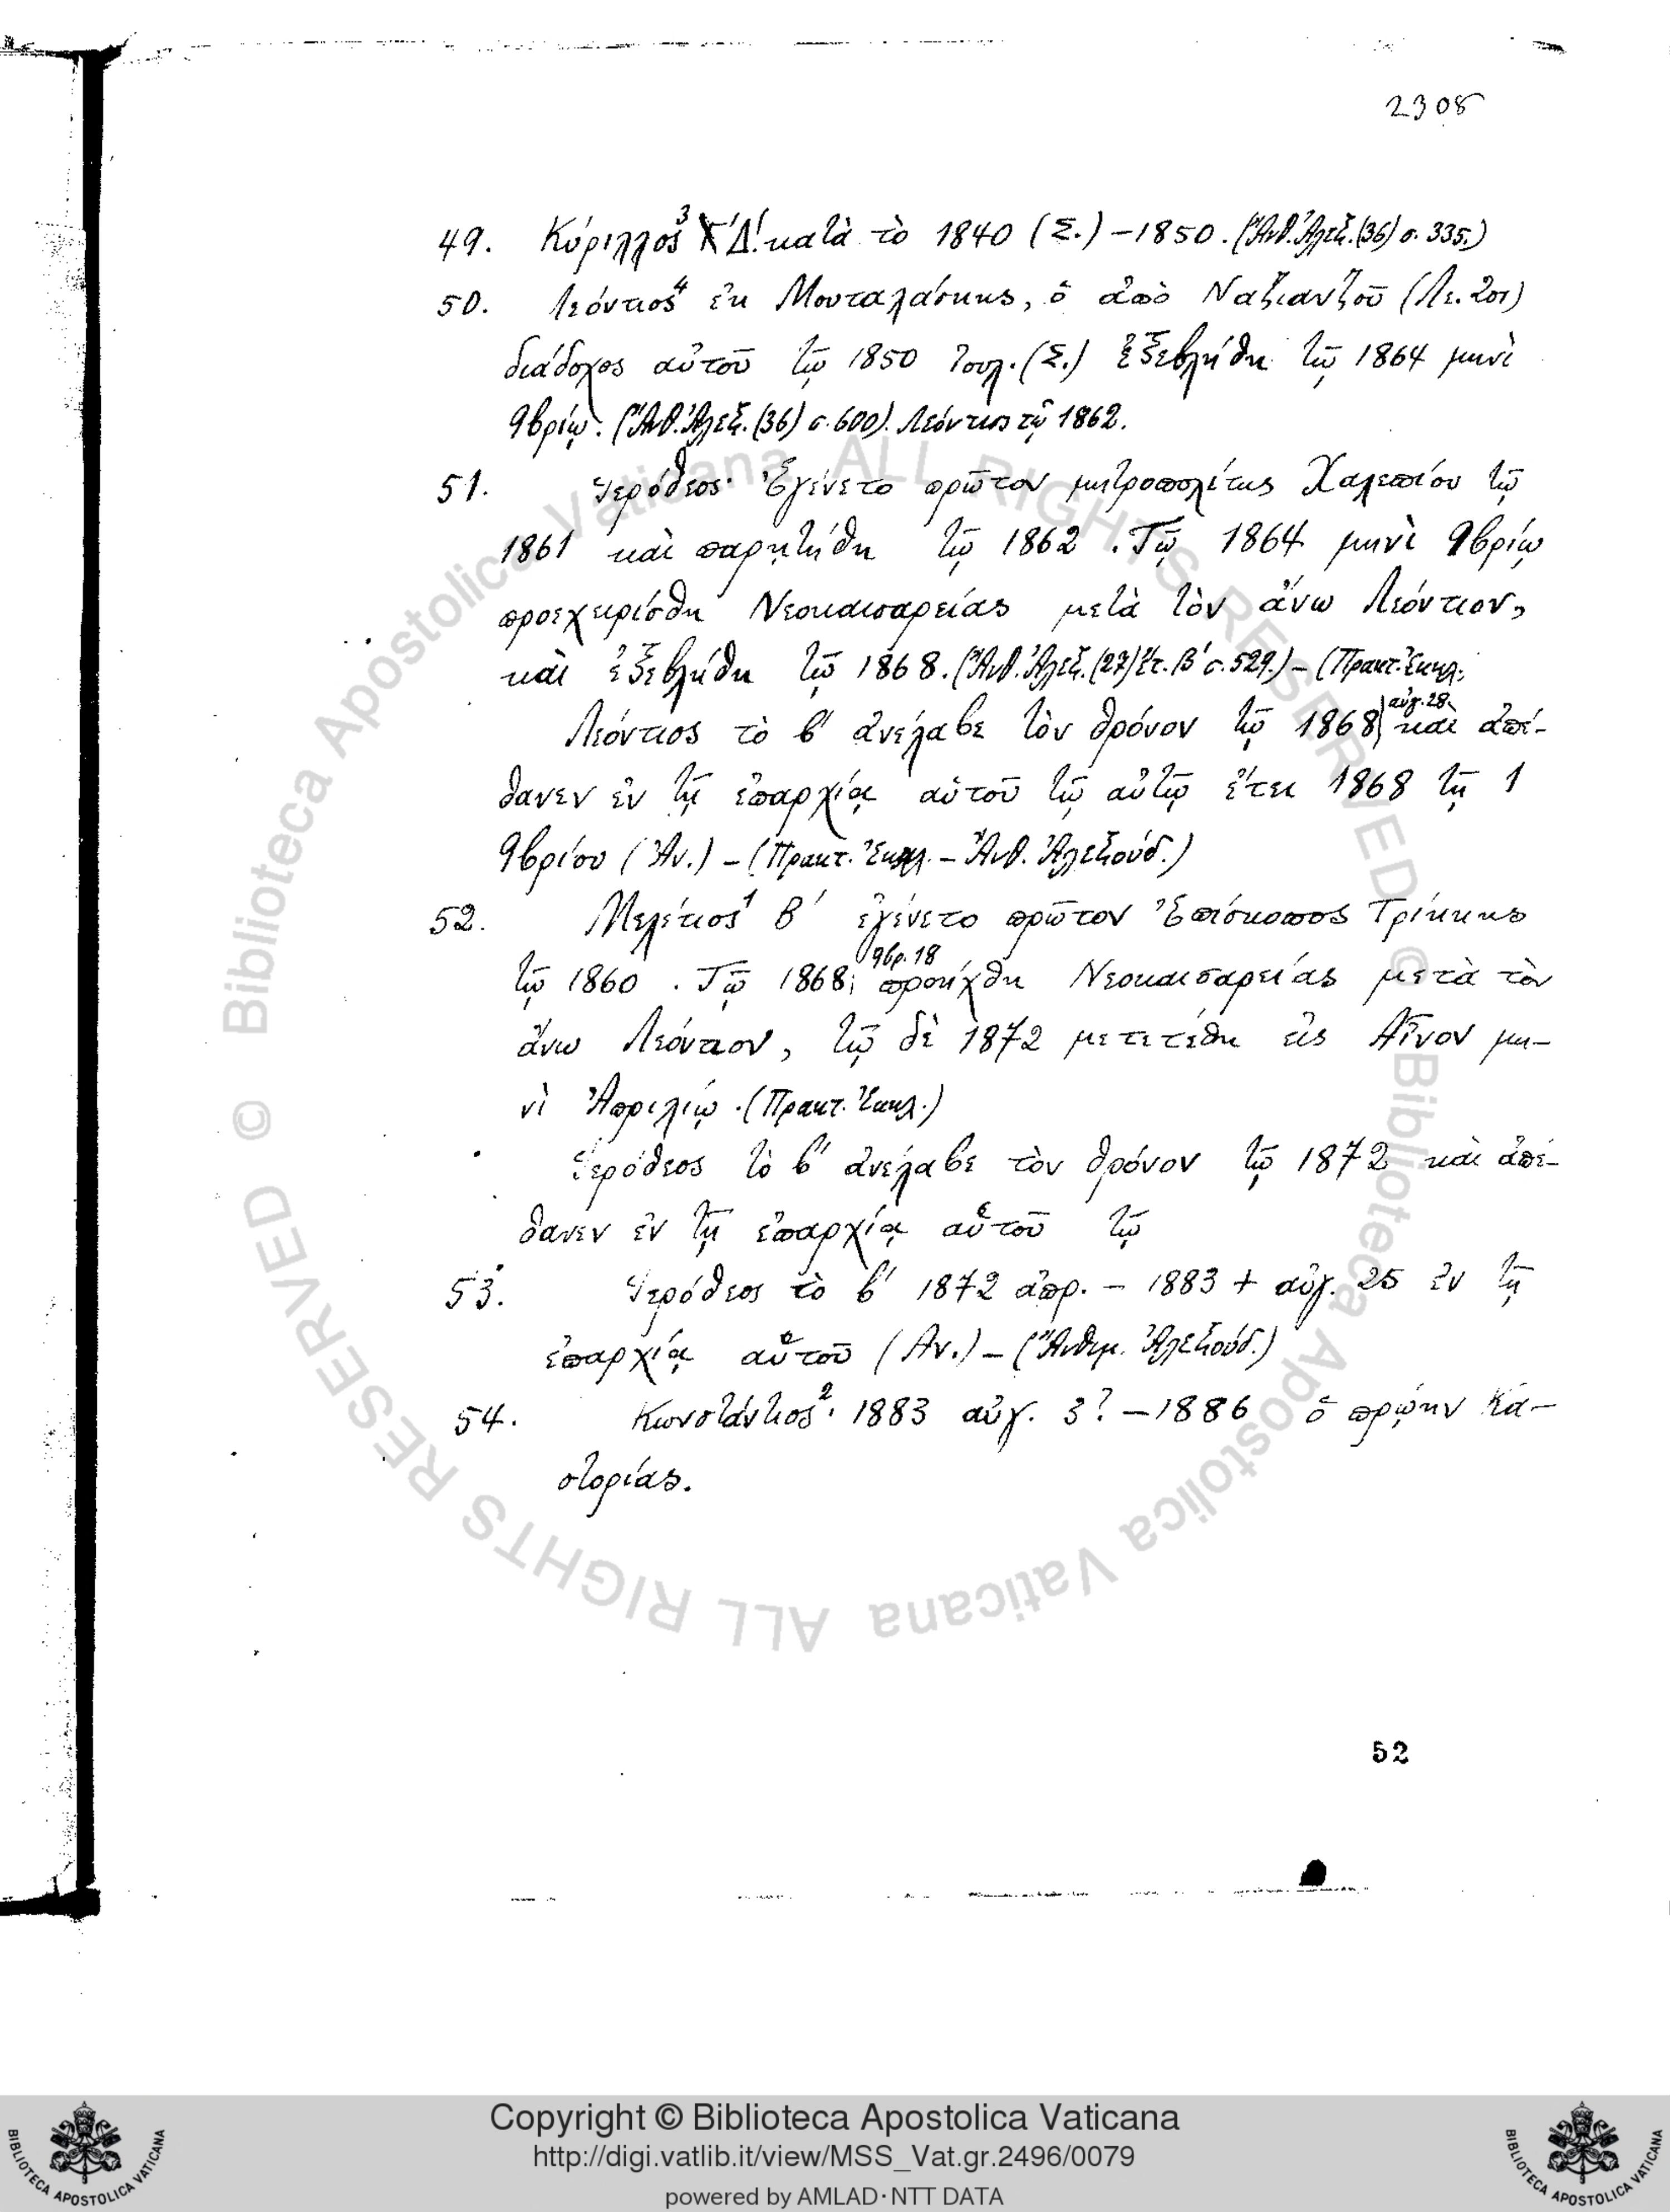 2308
49. Κύριλλος³ Δ΄. κατὰ τὸ 1840 (Σ.) – 1850. (Ἄνθ. Ἀλεξ. (36) σ. 335.)
50. Λεόντιος⁴ ἐκ Μουταλάσκης, ὁ ἀπὸ Ναζιανζοῦ (Λε. 201)
διάδοχος αὐτοῦ τῷ 1850 Ἰουλ. (Σ.) ἐξεβλήθη τῷ 1864 μηνὶ
9βρίῳ. (Ἄνθ. Ἀλεξ. (36) σ. 600). Λεόντιος τῷ 1862.
51. Ἱερόθεος· Ἐγένετο πρῶτον μητροπολίτης Χαλεπίου τῷ
1861 καὶ παρῃτήθη τῷ 1862. Τῷ 1864 μηνὶ 9βρίῳ
προεχειρίσθη Νεοκαισαρείας μετὰ τὸν ἄνω Λεόντιον,
καὶ ἐξεβλήθη τῷ 1868. (Ἄνθ. Ἀλεξ. (27) ἔτ. Β΄ σ. 529.) – (Πρακτ. Ἐκκλ.
αὐγ. 28.
Λεόντιος τὸ β΄ ἀνέλαβε τὸν θρόνον τῷ 1868 καὶ ἀπέ-
θανεν ἐν τῇ ἐπαρχίᾳ αὐτοῦ τῷ αὐτῷ ἔτει 1868 τῇ 1
9βρίου (Ἀν.) – (Πρακτ. Ἐκκλ. – Ἄνθ. Ἀλεξούδ.)
52. Μελέτιος¹ Β΄ ἐγένετο πρῶτον Ἐπίσκοπος Τρίκκης
9βρ. 18
τῷ 1860. Τῷ 1868 προήχθη Νεοκαισαρείας μετὰ τὸν
ἄνω Λεόντιον, τῷ δὲ 1872 μετετέθη εἰς Αἶνον μη-
νὶ Ἀπριλίῳ. (Πρακτ. Ἐκκλ.)
Ἱερόθεος τὸ β΄ ἀνέλαβε τὸν θρόνον τῷ 1872 καὶ ἀπέ-
θανεν ἐν τῇ ἐπαρχίᾳ αὑτοῦ τῷ
53. Ἱερόθεος τὸ β΄ 1872 ἀπρ. – 1883 + αὐγ. 25 ἐν τῇ
ἐπαρχίᾳ αὑτοῦ (Αν.) – (Ἄνθιμ. Ἀλεξούδ.)
54. Κωνστάντιος². 1883 αὐγ. 3? – 1886 ὁ πρῴην Κα-
στορίας.
52
Copyright © Biblioteca Apostolica Vaticana
http://digi.vatlib.it/view/MSS_Vat.gr.2496/0079
powered by AMLAD·NTT DATA
BIBLIOTECA APOSTOLICA VATICANA
BIBLIOTECA APOSTOLICA VATICANA
© Biblioteca Apostolica Vaticana ALL RIGHTS RESERVED © Biblioteca Apostolica Vaticana ALL RIGHTS RESERVED